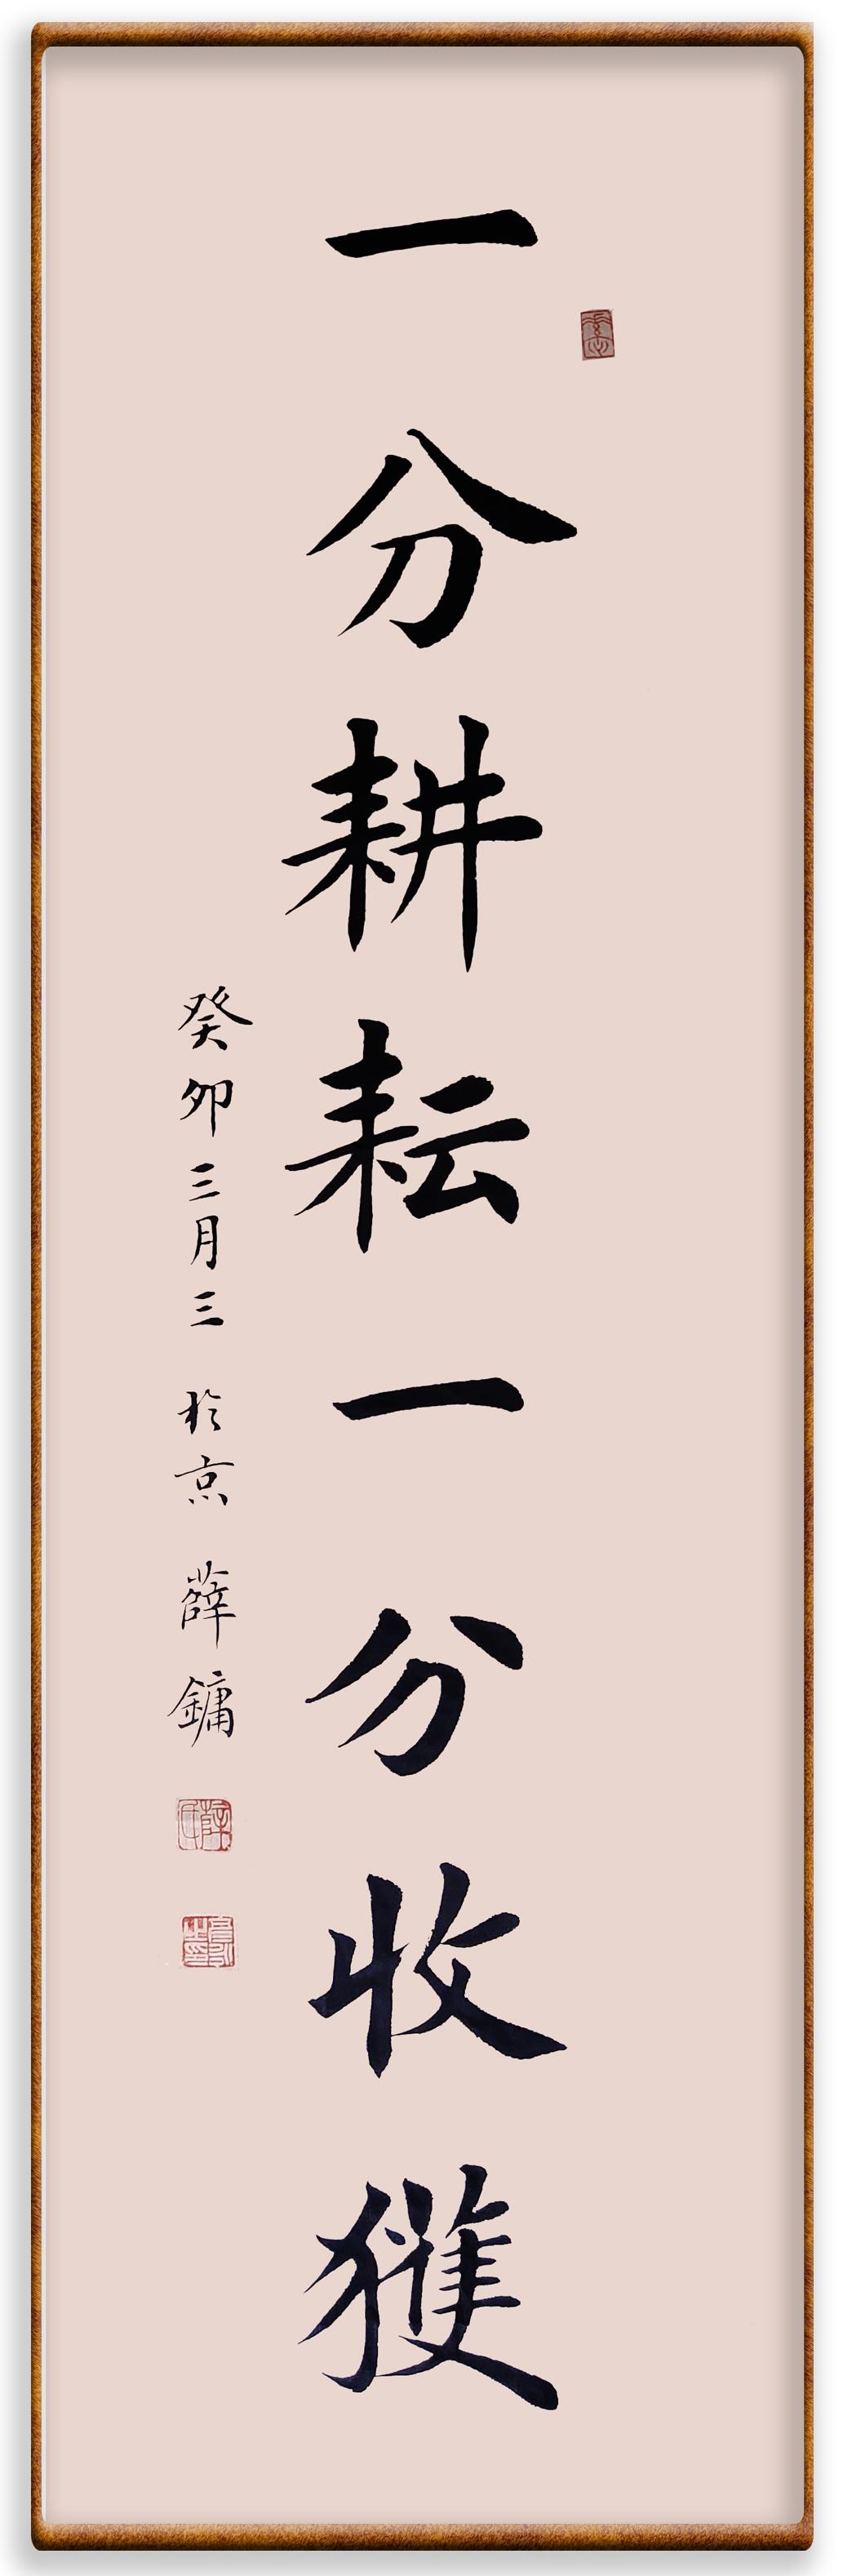 一分耕耘一分收獲
癸卯三月三 於京 薛鏞